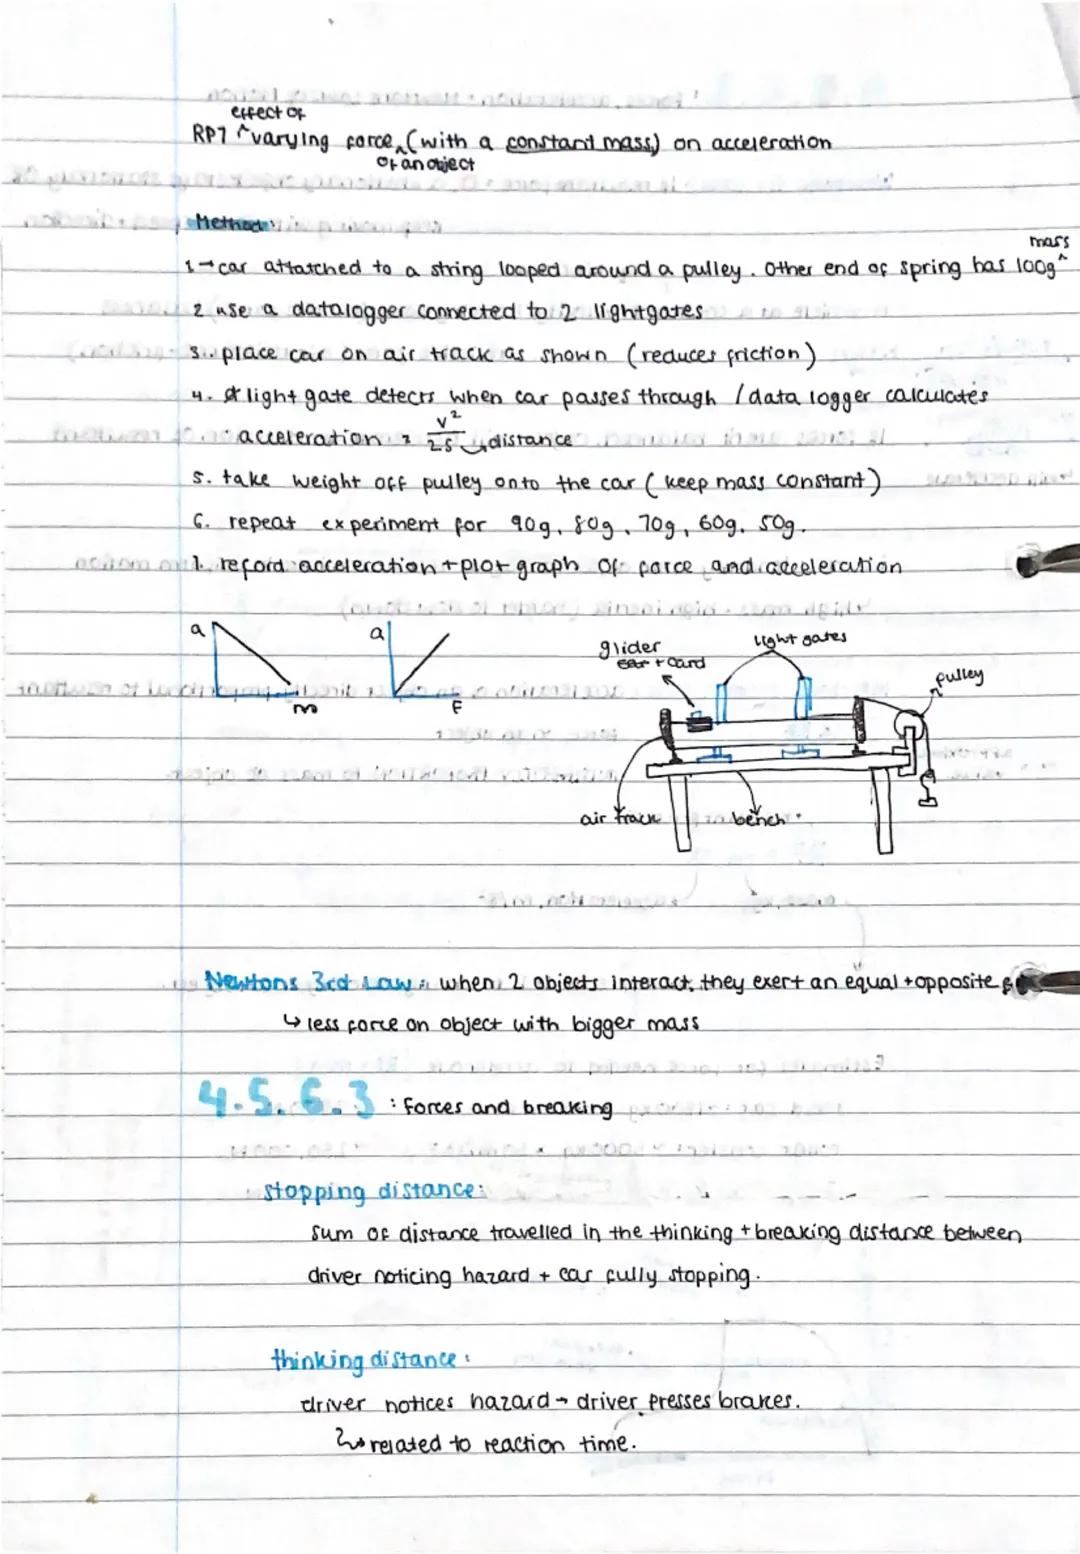 effect of
RP7 ^varying force^(with a constant mass) on acceleration
of an object
Method:
mass
1→car attatched to a string looped around a pulley. Other end of spring has 100g^
2 use a datalogger connected to 2 lightgates
3. place car on air track as shown (reduces friction)
4. light gate detects when car passes through / data logger calculates
acceleration = v²/2s ↳distance
5. take weight off pulley onto the car (keep mass constant)
6. repeat experiment for 90g, 80g, 70g, 60g, 50g.
7. record acceleration + plot graph of force and acceleration
a
m
a
F
glider
car + card
light gates
pulley
air track
bench
Newtons 3rd Law: when 2 objects interact, they exert an equal + opposite
↳ less force on object with bigger mass
4.5.6.3 : Forces and breaking
stopping distance:
sum of distance travelled in the thinking + breaking distance between
driver noticing hazard + car fully stopping.
thinking distance:
driver notices hazard → driver presses brakes.
↳ related to reaction time.